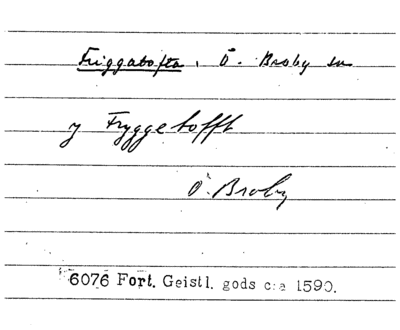 Friggatofta. Ö. Broby sn
y Fryggetofft
Ö. Broby
6076 Fort. Geistl. gods c:a 1590.